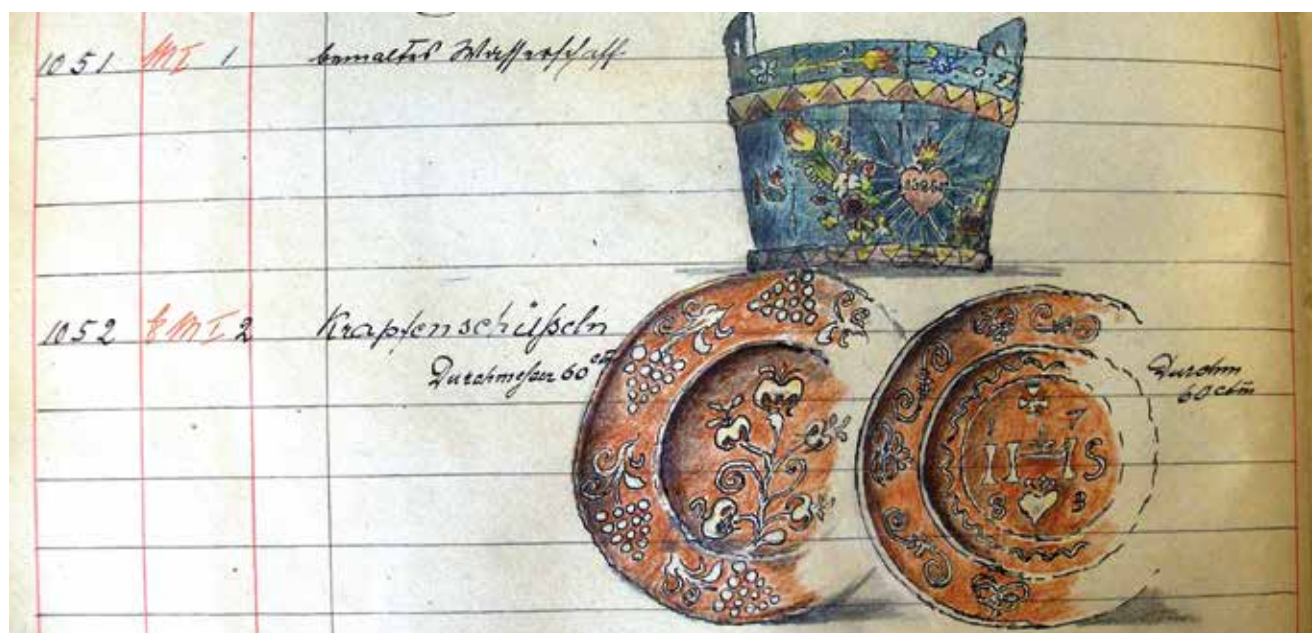 1051 M I 1 bemaltes Wasserschaff
1052 M I 2 Krapfenschüßeln
Durchmeßer 60 ctm
Durchm
60 ctm
1 7
IHS
8 3